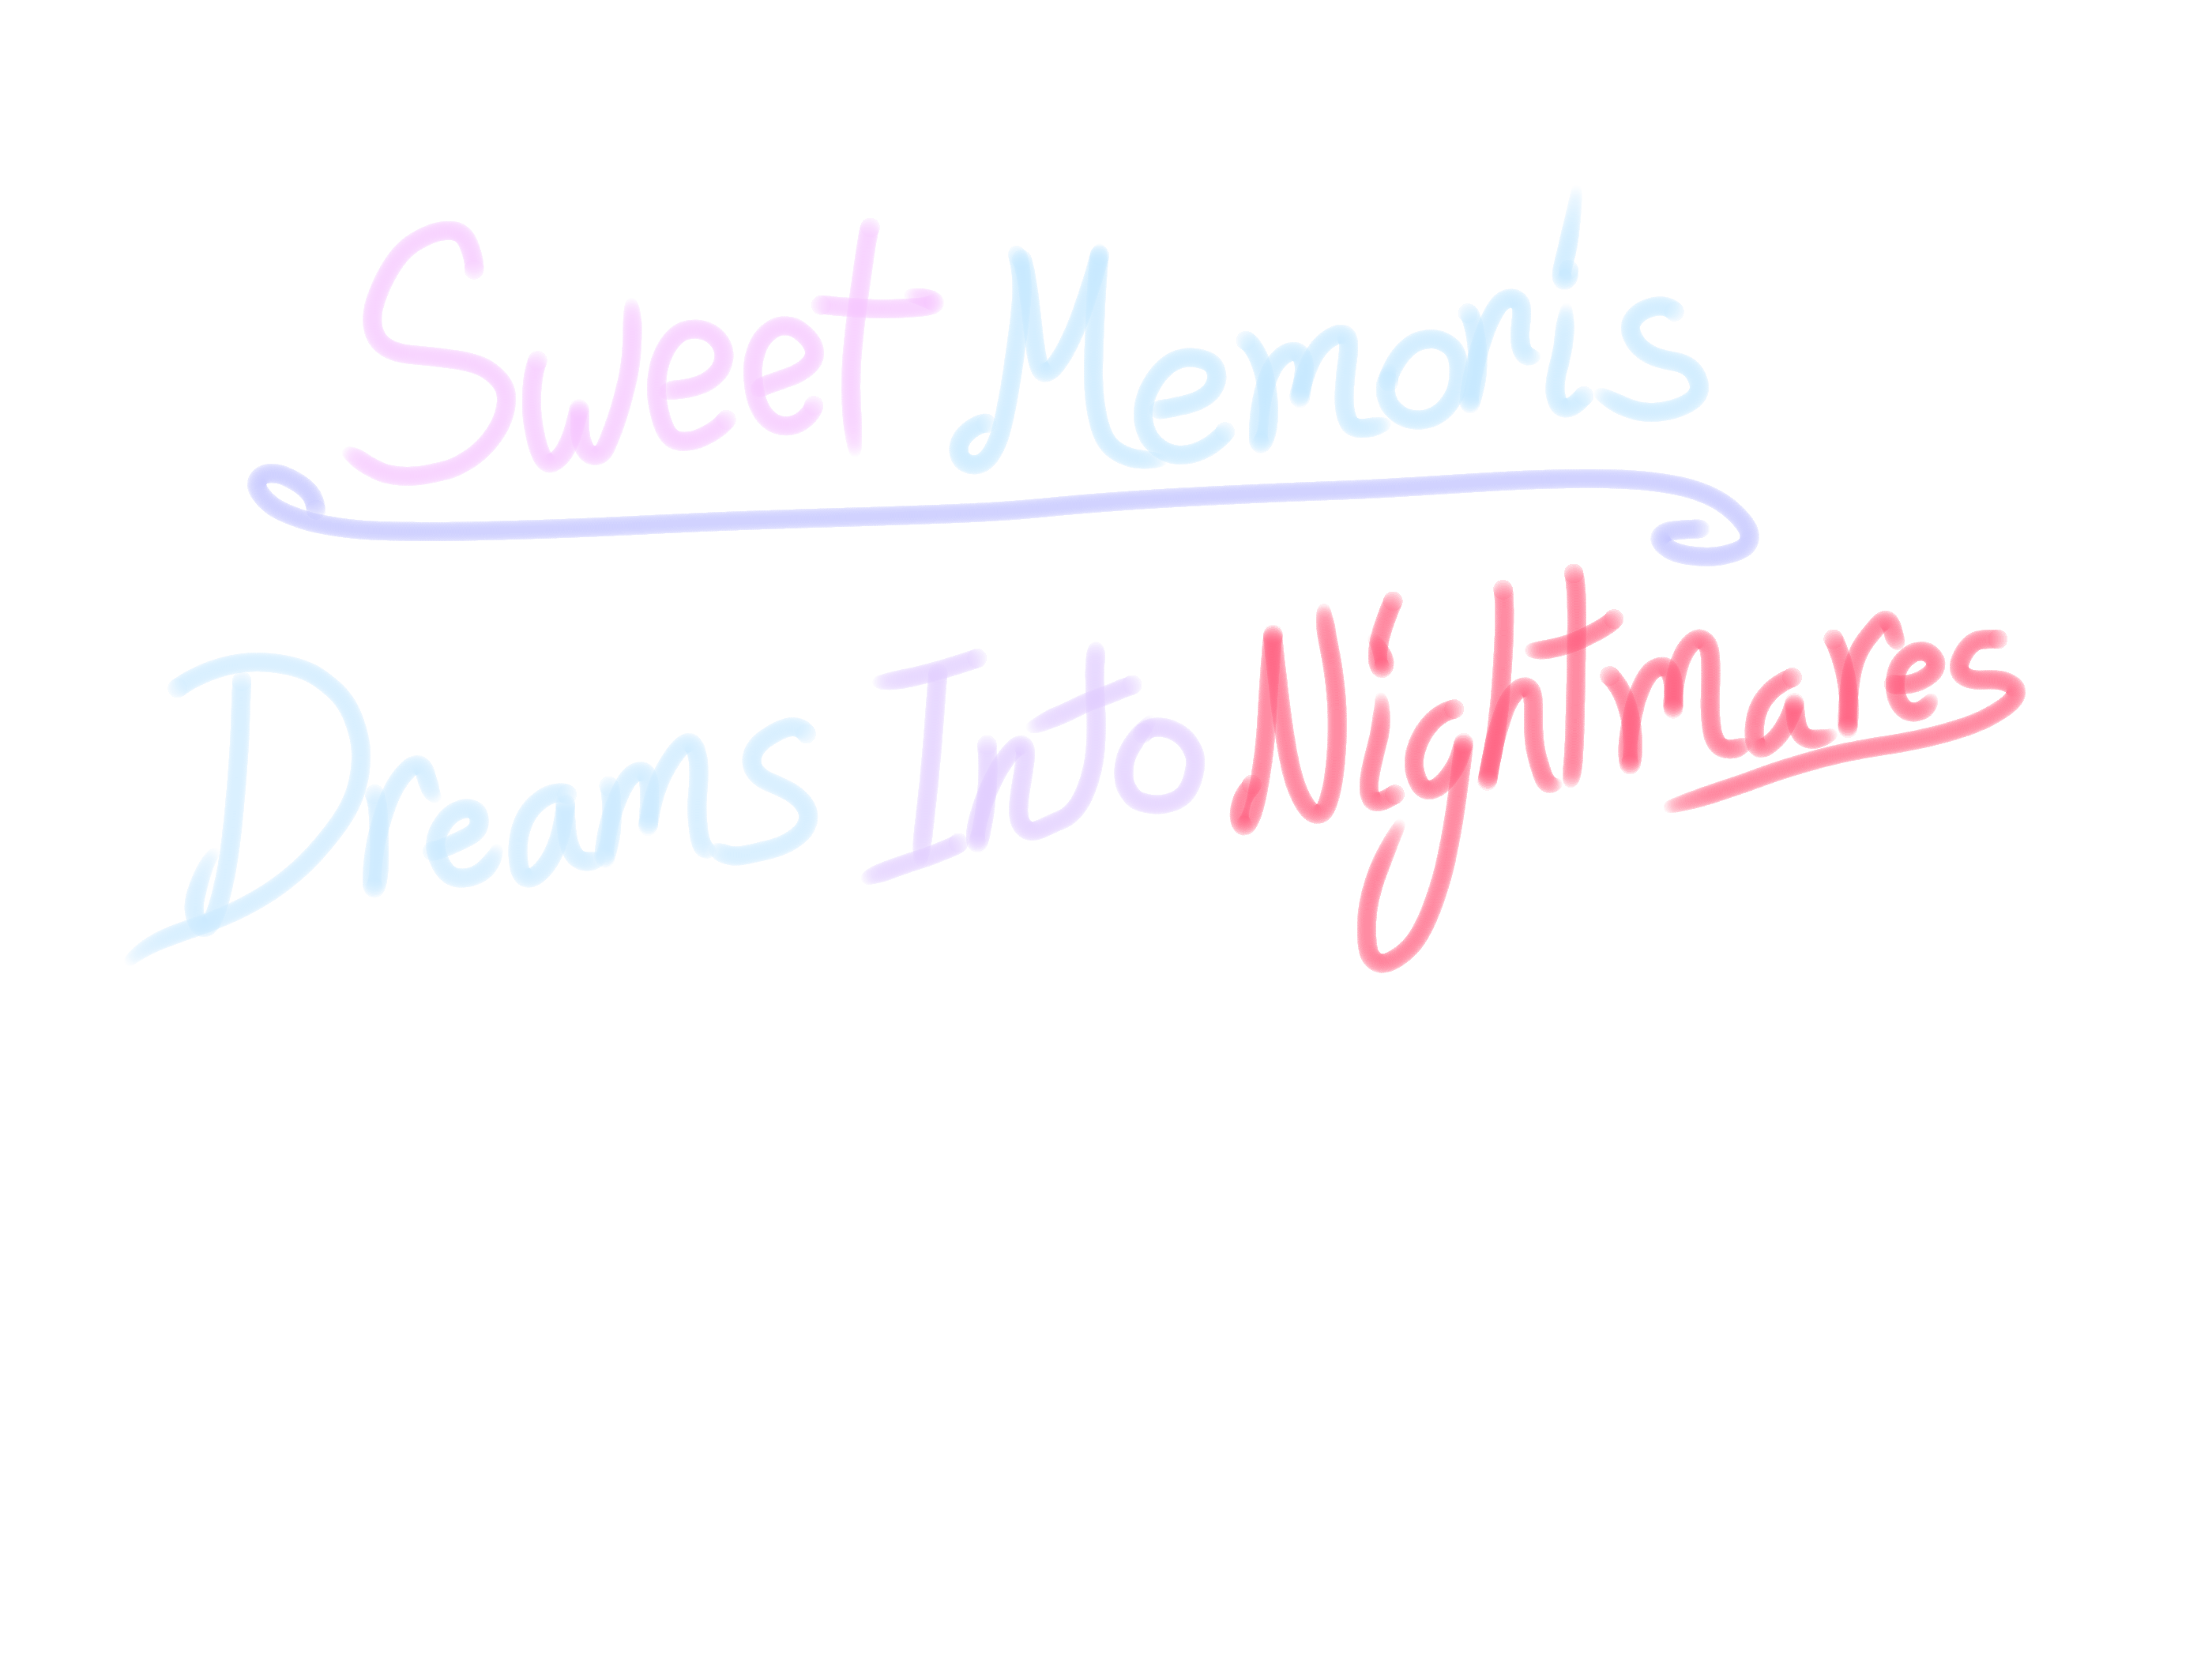 Sweet Memoris
Dreams Into Nightmares